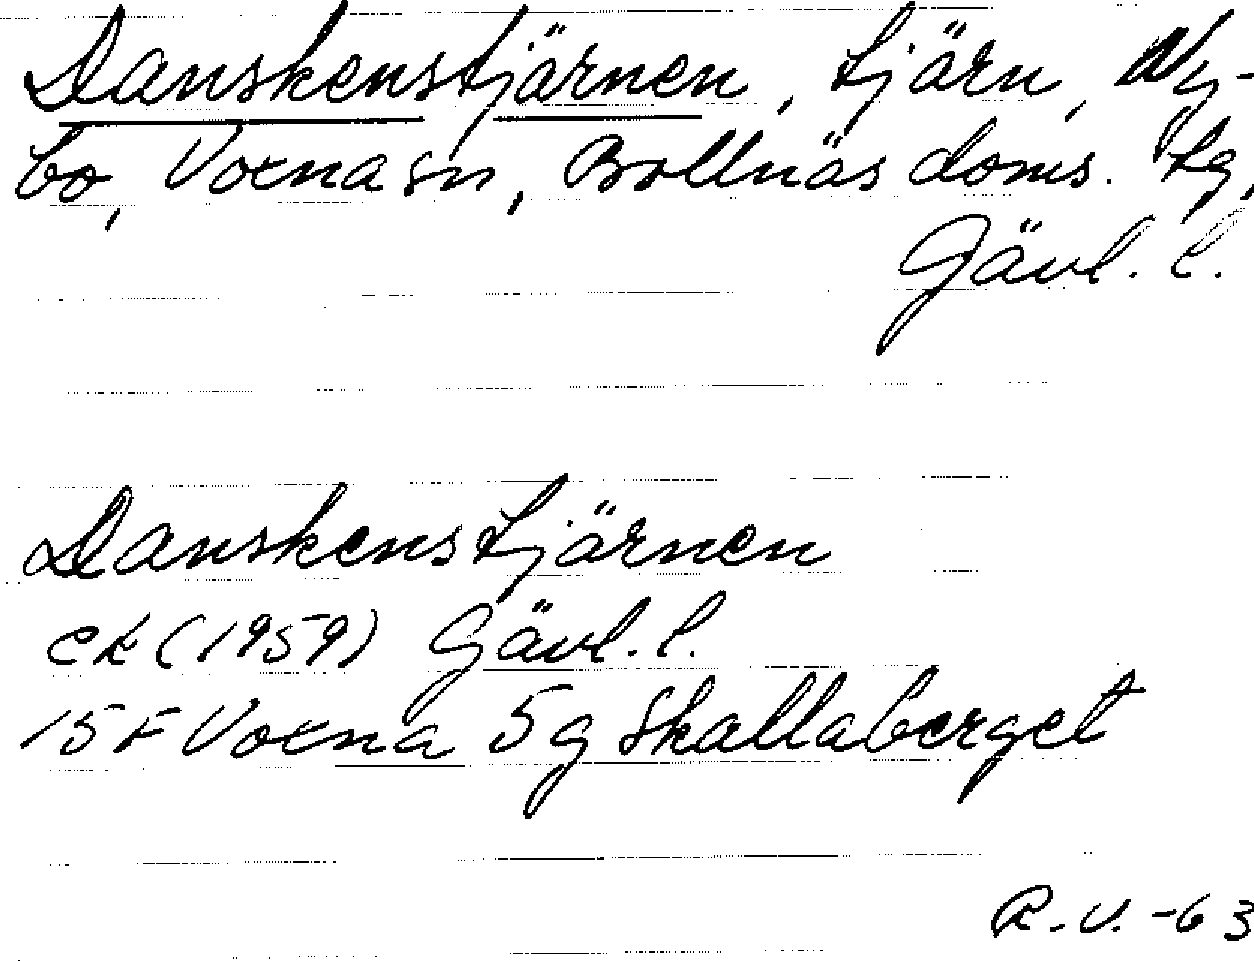 Danskenstjärnen, tjärn, Ny-
bo, Voxna sn, Bollnäs doms. tg,
Gävl. l.
Danskenstjärnen
ek (1959) Gävl. l.
15 F Voxna 5g Skallaberget
R.V. -63